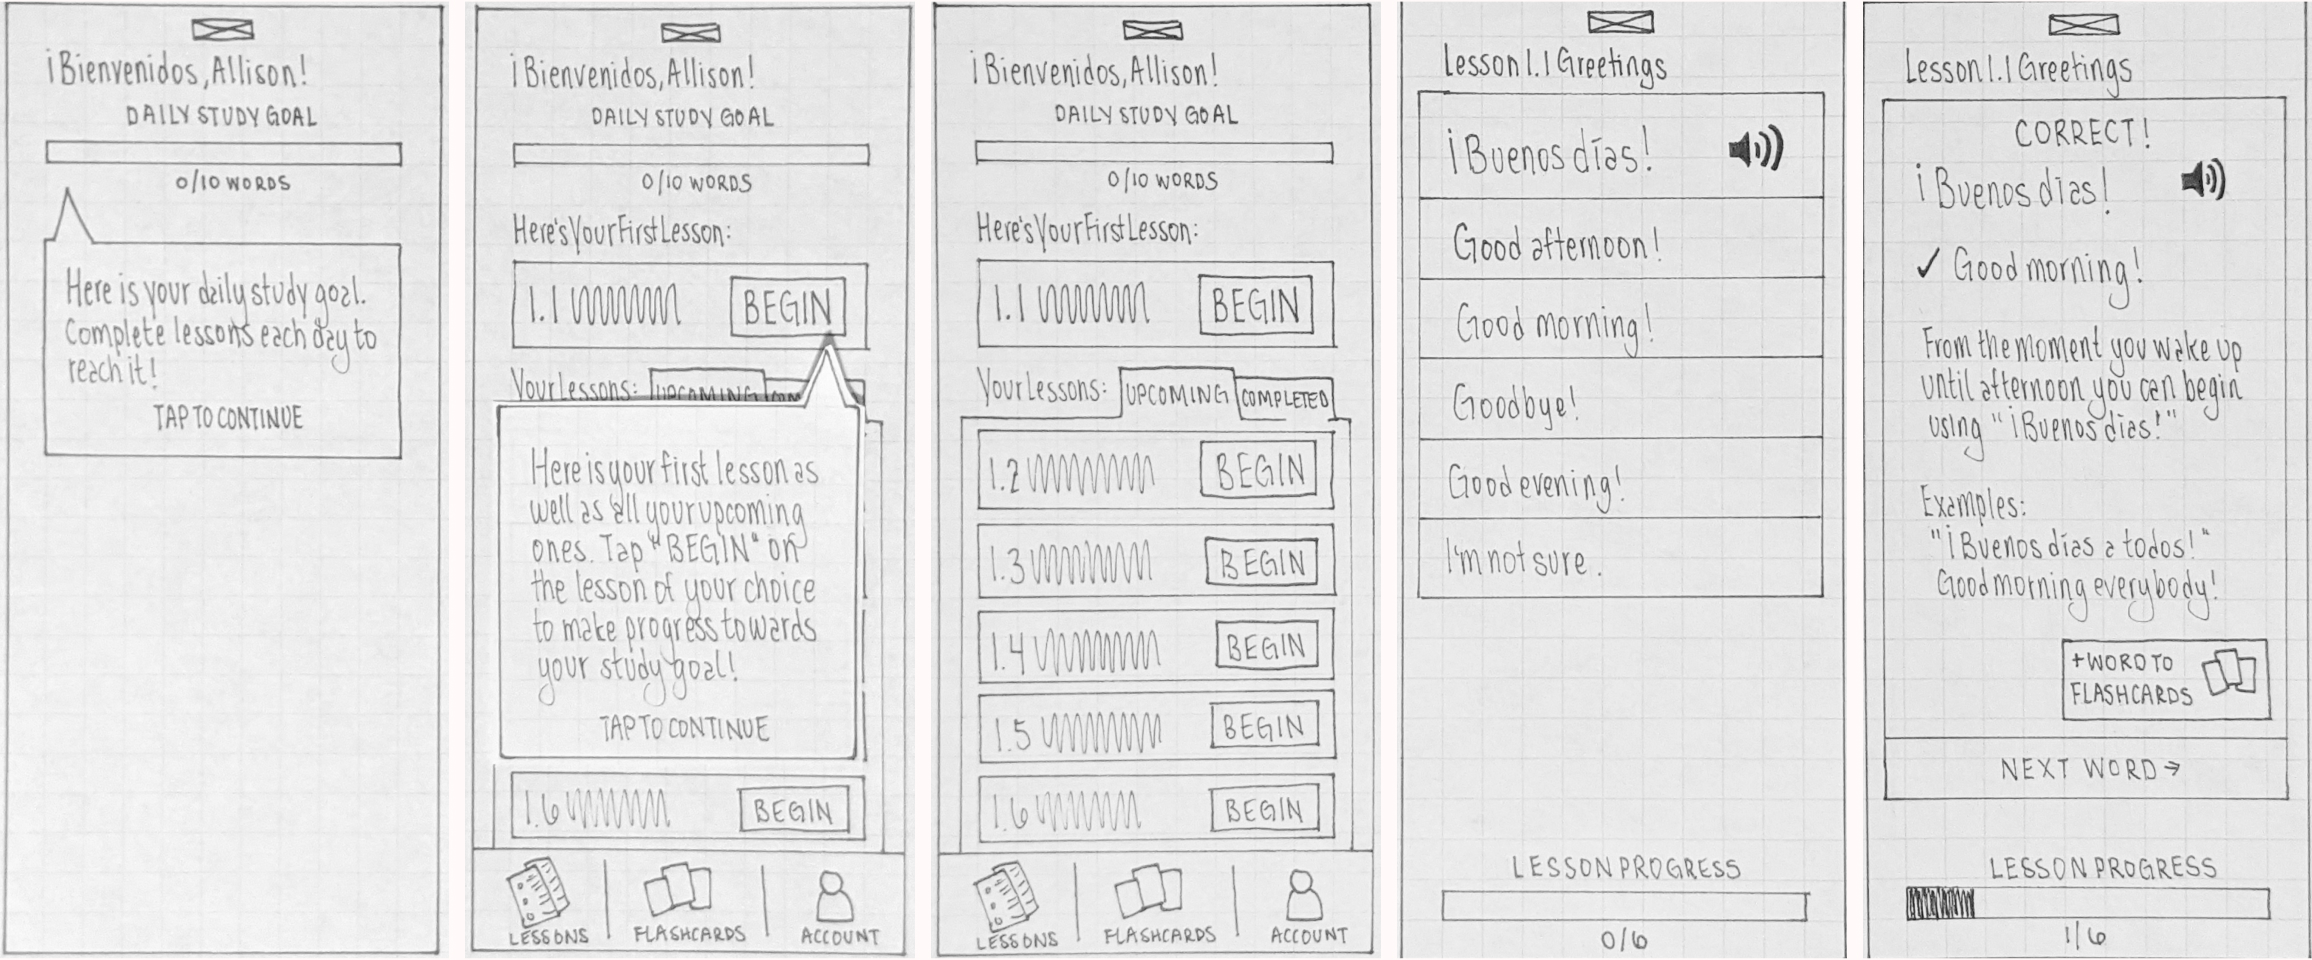 ¡Bienvenidos, Allison!
DAILY STUDY GOAL
0/10 WORDS
Here is your daily study goal.
Complete lessons each day to
reach it!
TAP TO CONTINUE
¡Bienvenidos, Allison!
DAILY STUDY GOAL
0/10 WORDS
Here's Your First Lesson:
1.1 BEGIN
Your Lessons: UPCOMING
Here is your first lesson as
well as all your upcoming
ones. Tap "BEGIN" on
the lesson of your choice
to make progress towards
your study goal!
TAP TO CONTINUE
1.6 BEGIN
LESSONS FLASHCARDS ACCOUNT
¡Bienvenidos, Allison!
DAILY STUDY GOAL
0/10 WORDS
Here's Your First Lesson:
1.1 BEGIN
Your Lessons: UPCOMING COMPLETED
1.2 BEGIN
1.3 BEGIN
1.4 BEGIN
1.5 BEGIN
1.6 BEGIN
LESSONS FLASHCARDS ACCOUNT
Lesson 1.1 Greetings
¡Buenos días!
Good afternoon!
Good morning!
Goodbye!
Good evening!
I'm not sure.
LESSON PROGRESS
0/6
Lesson 1.1 Greetings
CORRECT!
¡Buenos días!
✓ Good morning!
From the moment you wake up
until afternoon you can begin
using "¡Buenos días!"
Examples:
"¡Buenos días a todos!"
Good morning everybody!
+ WORD TO
FLASHCARDS
NEXT WORD →
LESSON PROGRESS
1/6